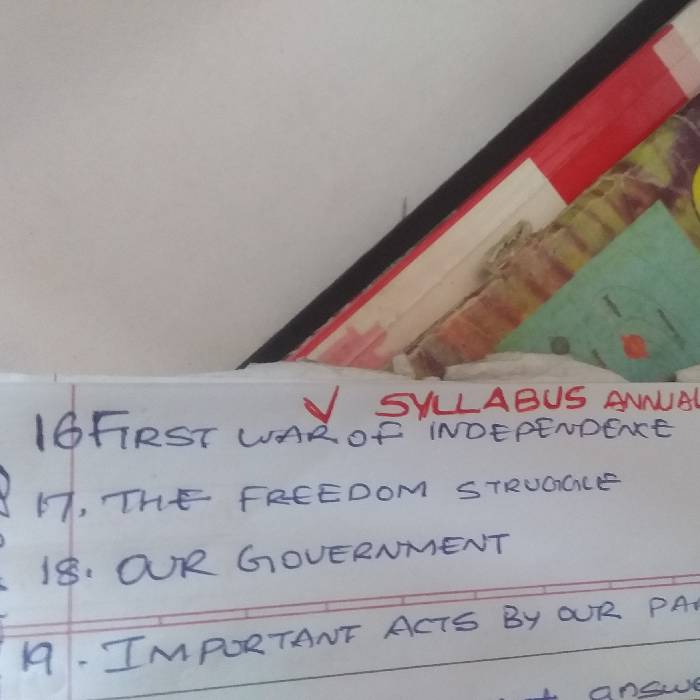 ✓ SYLLABUS ANNUAL
16 FIRST WAR OF INDEPENDENCE
17. THE FREEDOM STRUGGLE
18. OUR GOVERNMENT
19. IMPORTANT ACTS BY OUR